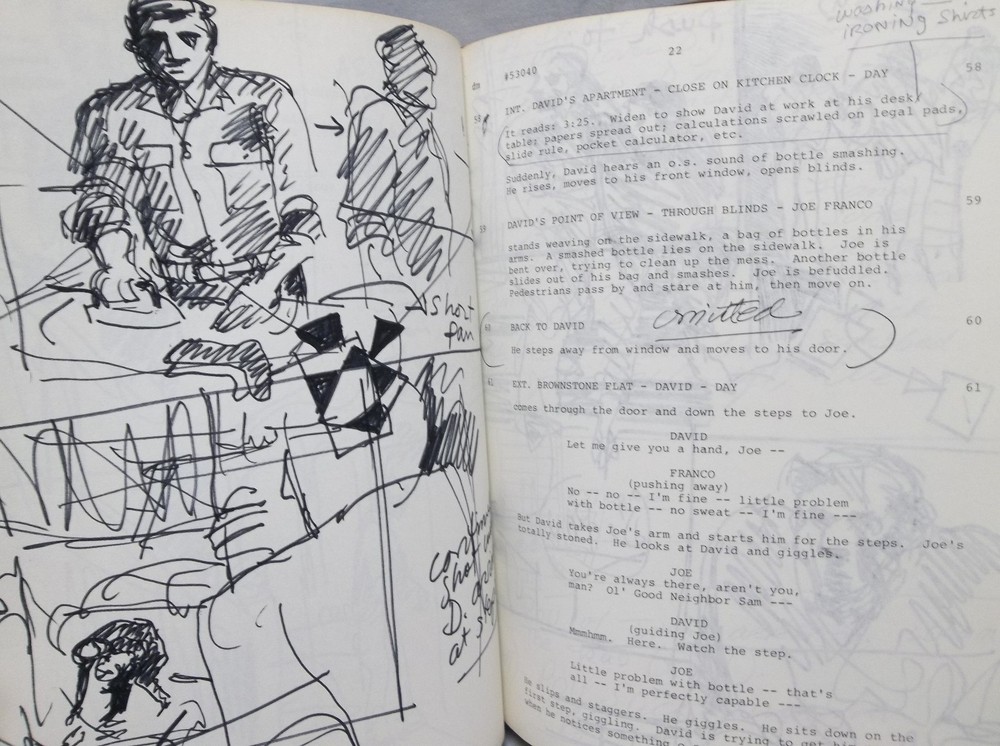 short
pan
at
washing —
IRONING Shirts
22
dm
#53040
INT. DAVID'S APARTMENT - CLOSE ON KITCHEN CLOCK - DAY
58
It reads: 3:25. Widen to show David at work at his desk/
table; papers spread out; calculations scrawled on legal pads,
slide rule, pocket calculator, etc.
Suddenly, David hears an o.s. sound of bottle smashing.
He rises, moves to his front window, opens blinds.
DAVID'S POINT OF VIEW - THROUGH BLINDS - JOE FRANCO
59
stands weaving on the sidewalk, a bag of bottles in his
arms. A smashed bottle lies on the sidewalk. Joe is
bent over, trying to clean up the mess. Another bottle
slides out of his bag and smashes. Joe is befuddled.
Pedestrians pass by and stare at him, then move on.
omitted
60 BACK TO DAVID 60
He steps away from window and moves to his door.
61 EXT. BROWNSTONE FLAT - DAVID - DAY 61
comes through the door and down the steps to Joe.
DAVID
Let me give you a hand, Joe --
FRANCO
(pushing away)
No -- no -- I'm fine -- little problem
with bottle -- no sweat -- I'm fine ---
But David takes Joe's arm and starts him for the steps. Joe's
totally stoned. He looks at David and giggles.
JOE
You're always there, aren't you,
man? Ol' Good Neighbor Sam ---
DAVID
(guiding Joe)
Mmmhmm. Here. Watch the step.
JOE
Little problem with bottle -- that's
all -- I'm perfectly capable ---
He slips and staggers. He giggles. He sits down on the
first step, giggling. David is trying to get
when he notices something